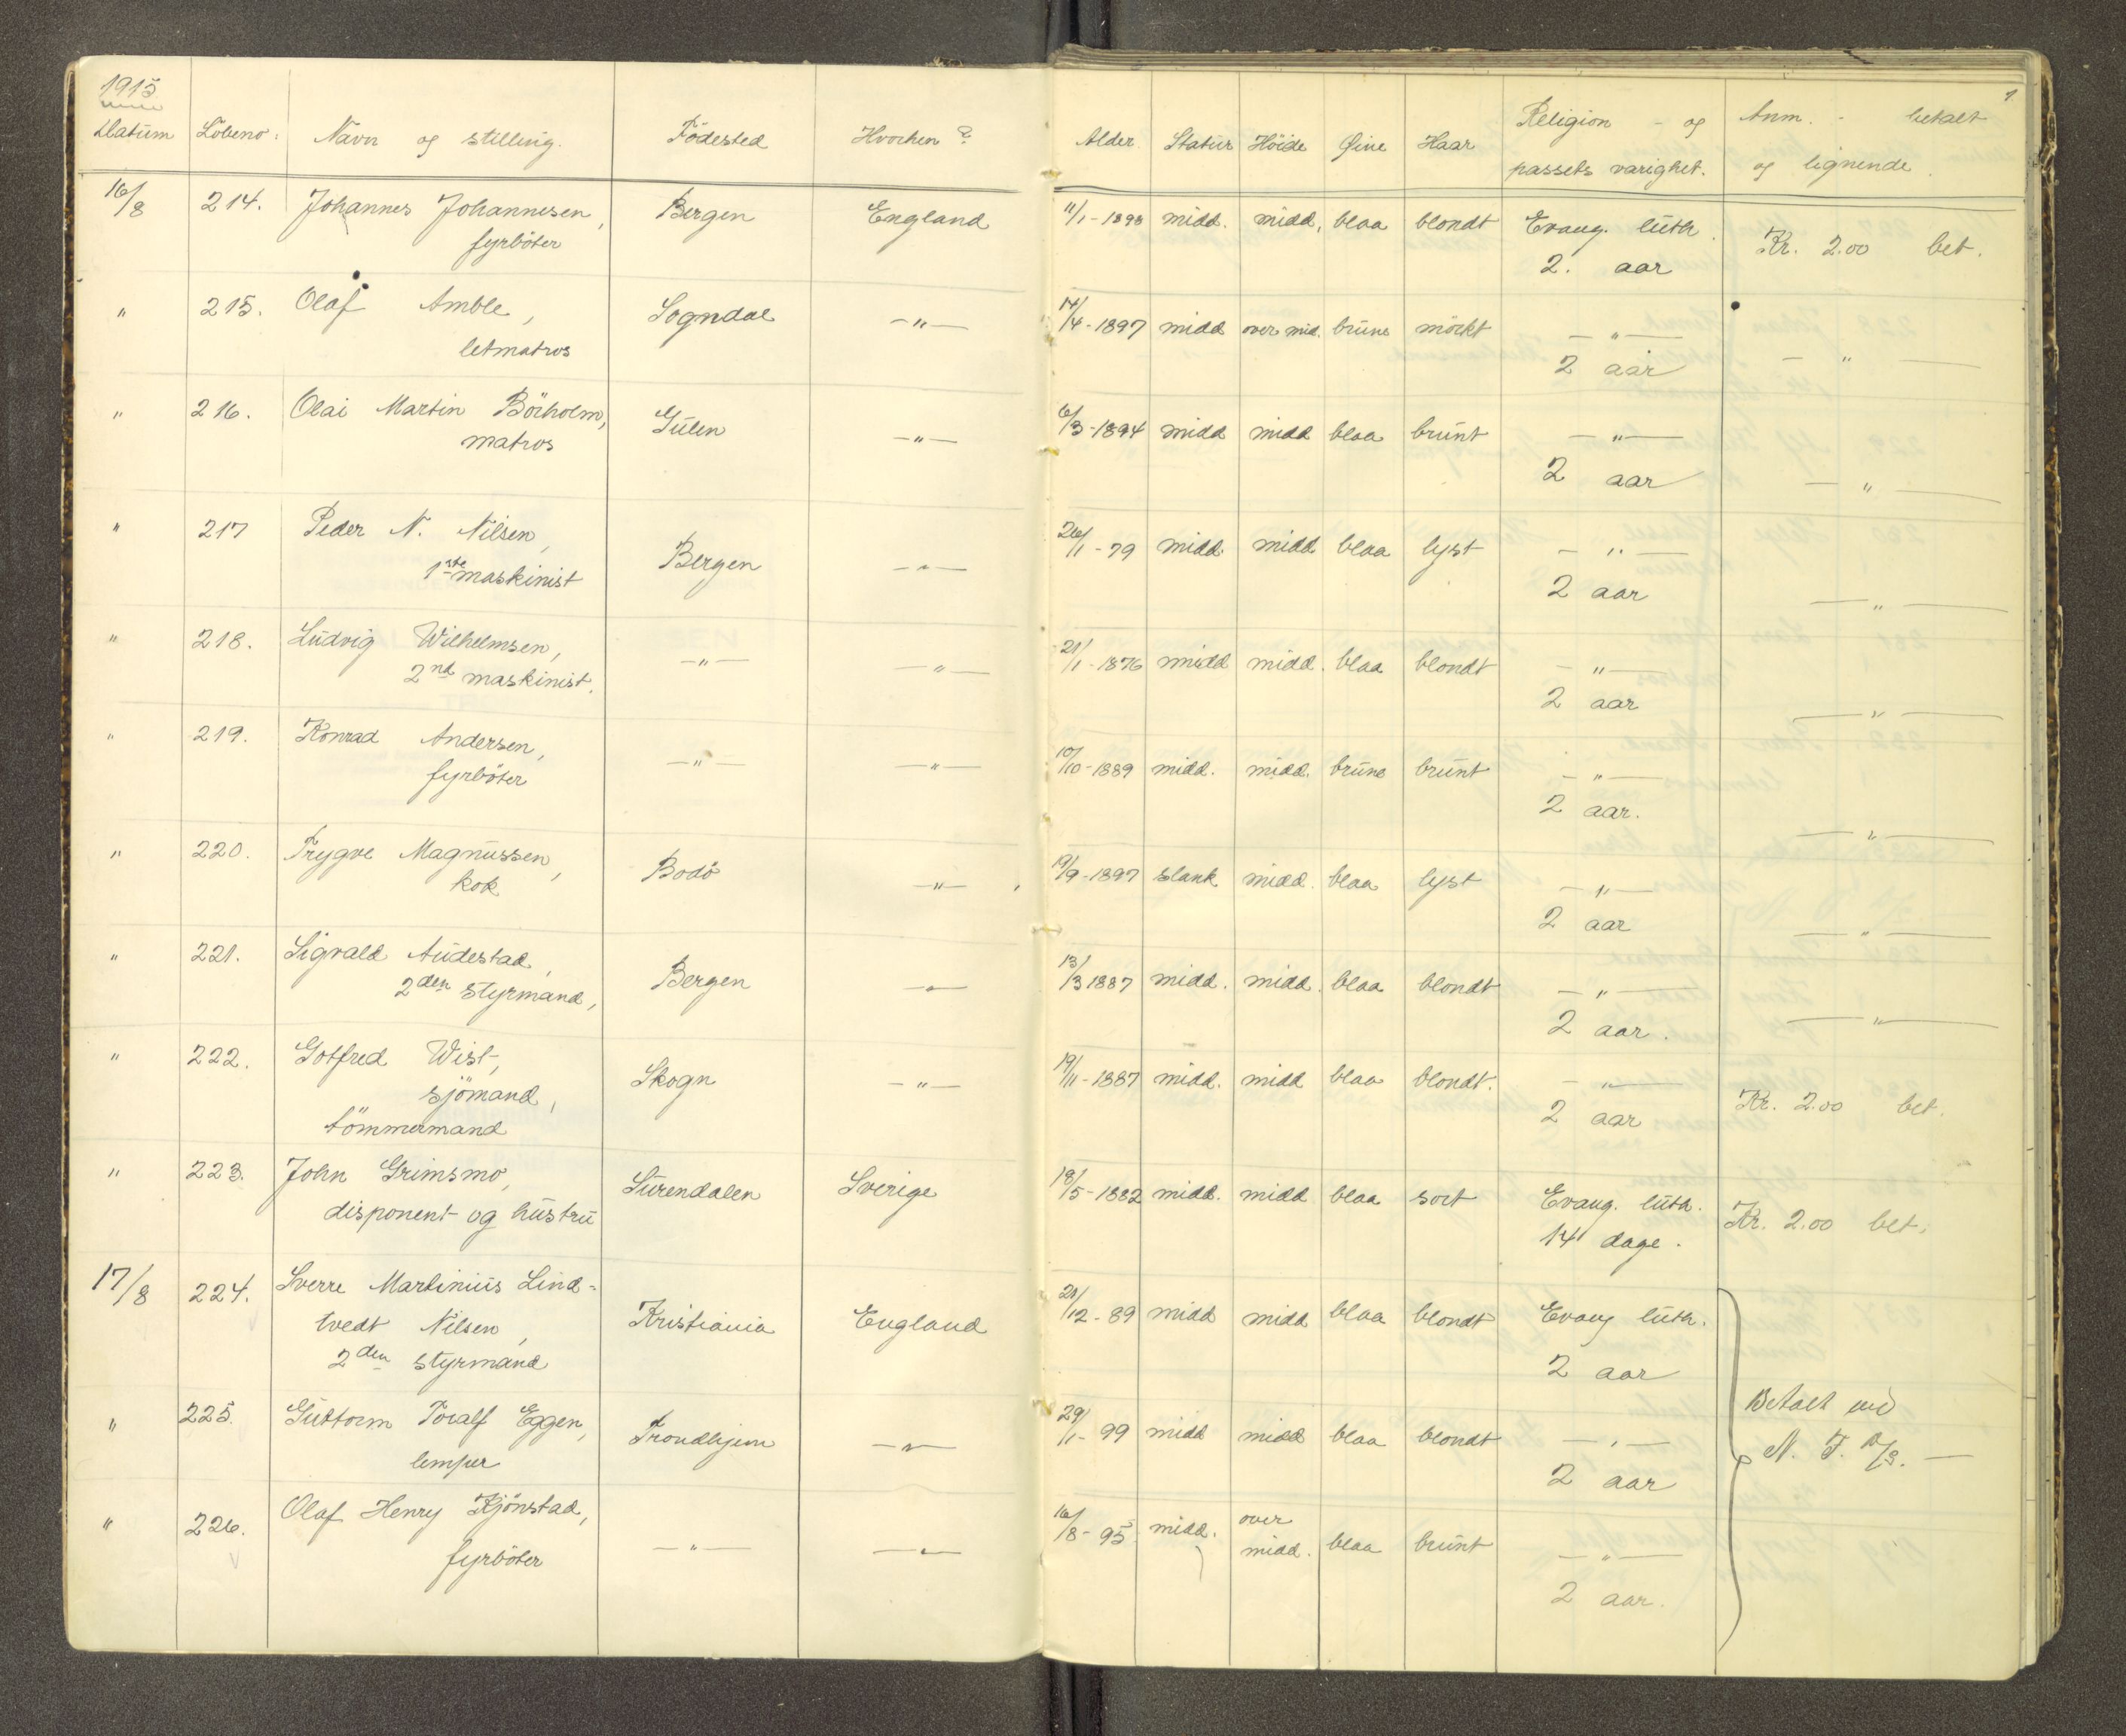 1915
Datum Löbeno: Navn og stilling. Födested Hvorhen? Alder Statur Höide Øine Haar Religion - og passets varighet. Anm. - betalt og lignende. 1
16/8 214. Johannes Johannesen, Bergen England 11/1-1898 midd. midd. blaa blondt Evang. luth. Kr. 2.00 bet.
fyrböter 2. aar
" 215. Olaf Amble, Sogndal -"- 14/4-1897 midd over mid. brune mörkt -"- -"-
letmatros 2 aar
" 216. Olai Martin Börholm, Gulen -"- 6/3-1894 midd midd blaa brunt -"- -"-
matros 2 aar
" 217 Peder N. Nilsen, Bergen -"- 26/1-79 midd. midd blaa lyst -"- -"-
1ste maskinist 2 aar
" 218. Ludvig Wilhelmsen, -"- -"- 21/1-1876 midd midd. blaa blondt -"- -"-
2nd maskinist. 2 aar
" 219. Konrad Andersen, -"- -"- 10/10-1889 midd. midd. brune brunt -"- -"-
fyrböter 2 aar.
" 220. Trygve Magnussen, Bodö -"- 19/9-1897 slank midd. blaa lyst -"- -"-
kok 2 aar
" 221. Sigvald Audestad, Bergen -"- 13/3 1887 midd. midd. blaa blondt -"- -"-
2den styrmand, 2 aar.
" 222. Gotfred Wist, Skogn -"- 19/11-1887 midd. midd blaa blondt. -"- Kr. 2.00 bet.
sjömand, 2 aar
tömmermand
" 223. John Grimsmo, Surendalen Sverige 18/5-1882 midd. midd blaa sort Evang. luth. Kr. 2.00 bet.
disponent og hustru 14 dage.
17/8 224. Sverre Martinius Lind-
tvedt Nilsen, Kristiania England 21/12-89 midd midd blaa blondt Evang luth.
2den styrmand 2 aar
" 225. Guttorm Toralf Eggen, Trondhjem -"- 29/1-99 midd midd blaa blondt -"- Betalt ved
lemper 2 aar N. T.
" 226. Olaf Henry Kjönstad, -"- -"- 16/8-95 midd. over midd. blaa brunt -"-
fyrböter 2 aar.